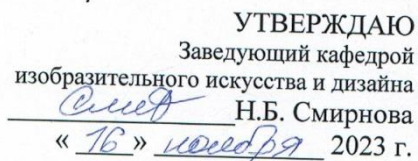 УТВЕРЖДАЮ
Заведующий кафедрой
изобразительного искусства и дизайна
Смир Н.Б. Смирнова
« 16 » ноября 2023 г.